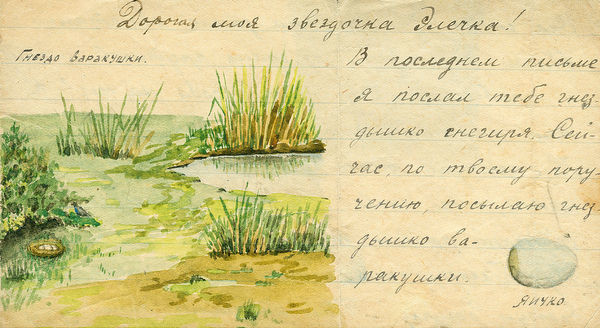 Дорогая моя звездочка Элечка!
Гнездо варакушки.
В последнем письме
я послал тебе гнез-
дышко снегиря. Сей-
час, по твоему пору-
чению, посылаю гнез-
дышко ва-
ракушки.
Яичко